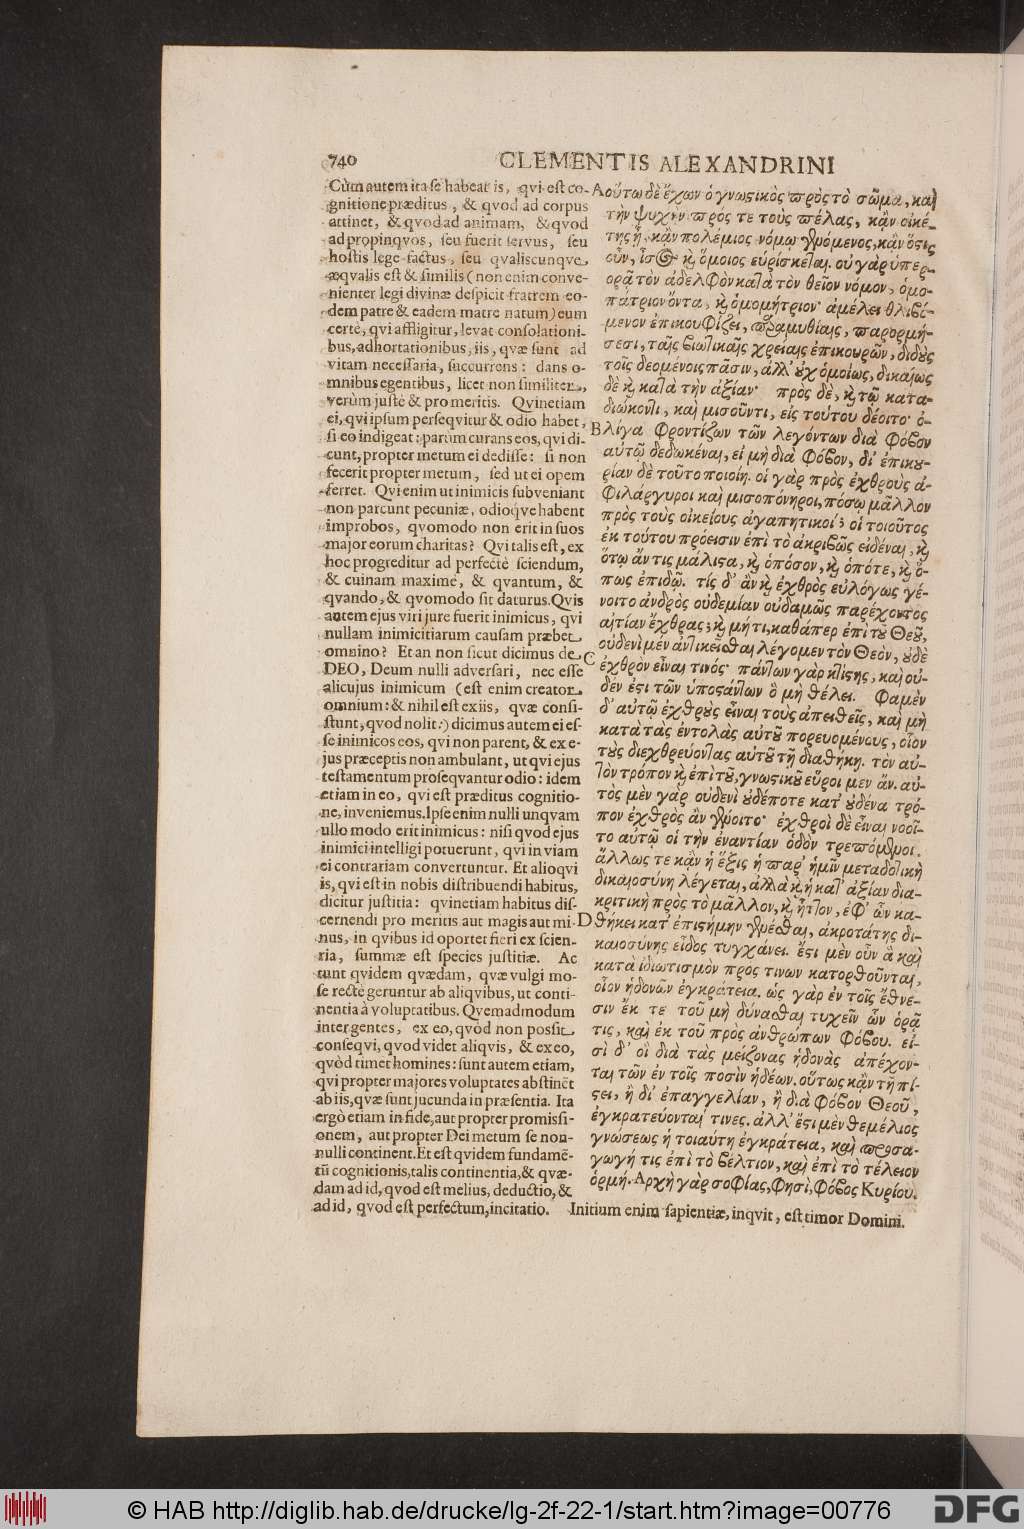 740
CLEMENTIS ALEXANDRINI
Cùm autem ita se habeat is, qui est co-
gnitione præditus, & qvod ad corpus
attinet, & qvod ad animam, & qvod
ad propinqvos, seu fuerit servus, seu
hostis lege factus, seu qvaliscunqve
æqvalis est & similis (non enim conve-
nienter legi divinæ despicit fratrem eo-
dem patre & eadem matre natum) eum
certè, qvi affligitur, levat consolationi-
bus, adhortationibus, iis, qvæ sunt ad
vitam necessaria, succurrens: dans o-
mnibus egentibus, licet non similiter,
verùm justè & pro meritis. Qvinetiam
ei, qvi ipsum perseqvitur & odio habet,
si eo indigeat: parùm curans eos, qvi di-
cunt, propter metum ei dedisse: si non
fecerit propter metum, sed ut ei opem
ferret. Qvi enim ut inimicis subveniant
non parcunt pecuniæ, odioqve habent
improbos, qvomodo non erit in suos
major eorum charitas? Qvi talis est, ex
hoc progreditur ad perfectè sciendum,
& cuinam maximè, & qvantum, &
qvando, & qvomodo sit daturus. Qvis
autem ejus viri jure fuerit inimicus, qvi
nullam inimicitiarum causam præbet
omnino? Et an non sicut dicimus de
DEO, Deum nulli adversari, nec esse
alicujus inimicum (est enim creator
omnium: & nihil est ex iis, qvæ consi-
stunt, qvod nolit:) dicimus autem ei es-
se inimicos eos, qvi non parent, & ex e-
jus præceptis non ambulant, ut qvi ejus
testamentum proseqvantur odio: idem
etiam in eo, qvi est præditus cognitio-
ne, inveniemus. Ipse enim nulli unqvam
ullo modo erit inimicus: nisi qvod ejus
inimici intelligi potuerunt, qvi in viam
ei contrariam convertuntur. Et alioqvi
is, qvi est in nobis distribuendi habitus,
dicitur justitia: qvinetiam habitus dis-
cernendi pro meritis aut magis aut mi-
nus, in qvibus id oportet fieri ex scien-
ria, summæ est species justitiæ. Ac
sunt qvidem qvædam, qvæ vulgi mo-
se rectè geruntur ab aliqvibus, ut conti-
nentia à voluptatibus. Qvemadmodum
inter gentes, ex eo, qvòd non possit
conseqvi, qvod videt aliqvis, & ex eo,
qvòd timet homines: sunt autem etiam,
qvi propter majores voluptates abstinēt
ab iis, qvæ sunt jucunda in præsentia. Ita
ergò etiam in fide, aut propter promissi-
onem, aut propter Dei metum se non-
nulli continent. Et est qvidem fundamē-
tū cognitionis, talis continentia, & qvæ-
dam ad id, qvod est melius, deductio, &
ad id, qvod est perfectum, incitatio. Initium enim sapientiæ, inqvit, est timor Domini.
A οὕτω δὲ ἔχων ὁ γνωστικὸς πρὸς τὸ σῶμα, καὶ
τὴν ψυχὴν πρός τε τοὺς πέλας, κἂν οἰκέ-
της ᾖ, κἂν πολέμιος νόμῳ γενόμενος, κἂν ὅστις
οὖν, ἶσος καὶ ὅμοιος εὑρίσκεται. οὐ γὰρ ὑπερ-
ορᾷ τὸν ἀδελφὸν κατὰ τὸν θεῖον νόμον, ὁμο-
πάτριον ὄντα, καὶ ὁμομήτριον· ἀμέλει θλιβό-
μενον ἐπικουφίζει, παραμυθίαις, παρορμή-
σεσι, ταῖς βιωτικαῖς χρείαις ἐπικουρῶν, διδοὺς
τοῖς δεομένοις πᾶσιν, ἀλλ' οὐχ ὁμοίως, δικαίως
δὲ καὶ κατὰ τὴν ἀξίαν· πρὸς δὲ, καὶ τῷ κατα-
διώκοντι, καὶ μισοῦντι, εἰς τούτου δέοιτο· ὀ-
B λίγα φροντίζων τῶν λεγόντων διὰ φόβον
αὐτῷ δεδωκέναι, εἰ μὴ διὰ φόβον, δι' ἐπικου-
ρίαν δὲ τοῦτο ποιοίη. οἱ γὰρ πρὸς ἐχθροὺς ἀ-
φιλάργυροι καὶ μισοπόνηροι, πόσῳ μᾶλλον
πρὸς τοὺς οἰκείους ἀγαπητικοί; οἱ τοιοῦτος
ἐκ τούτου πρόεισιν ἐπὶ τὸ ἀκριβῶς εἰδέναι, καὶ
ὅτῳ ἄν τις μάλιστα, καὶ ὁπόσον, καὶ ὁπότε, καὶ ὅ-
πως ἐπιδῷ. τίς δ' ἂν καὶ ἐχθρὸς εὐλόγως γέ-
νοιτο ἀνδρὸς οὐδεμίαν οὐδαμῶς παρέχοντος
αἰτίαν ἔχθρας; καὶ μή τι, καθάπερ ἐπὶ τοῦ Θεοῦ,
οὐδενὶ μὲν ἀντικεῖσθαι λέγομεν τὸν Θεὸν, οὐδὲ
C ἐχθρὸν εἶναι τινός· πάντων γὰρ κτίστης, καὶ οὐ-
δέν ἐστι τῶν ὑποστάντων ὃ μὴ θέλει. Φαμὲν
δ' αὐτῷ ἐχθροὺς εἶναι τοὺς ἀπειθεῖς, καὶ μὴ
κατὰ τὰς ἐντολὰς αὐτοῦ πορευομένους, οἷον
τοὺς διεχθρεύοντας αὐτοῦ τῇ διαθήκῃ. τὸν αὐ-
τὸν τρόπον καὶ ἐπὶ τοῦ γνωστικοῦ εὕροι μεν ἄν. αὐ-
τὸς μὲν γὰρ οὐδενὶ οὐδέποτε κατ' οὐδένα τρό-
πον ἐχθρὸς ἂν γένοιτο· ἐχθροὶ δὲ εἶναι νοοῖ-
το αὐτῷ οἱ τὴν ἐναντίαν ὁδὸν τρεπόμενοι.
ἄλλως τε κἂν ἡ ἕξις ἡ παρ' ἡμῖν μεταδοτικὴ
δικαιοσύνη λέγεται, ἀλλὰ καὶ ἡ κατ' ἀξίαν δια-
κριτικὴ πρὸς τὸ μᾶλλον, καὶ ἧττον, ἐφ' ὧν κα-
D θήκει κατ' ἐπιστήμην γενέσθαι, ἀκροτάτης δι-
καιοσύνης εἶδος τυγχάνει. ἔστι μὲν οὖν ἃ καὶ
κατὰ ἰδιωτισμὸν πρός τινων κατορθοῦνται,
οἷον ἡδονῶν ἐγκράτεια. ὡς γὰρ ἐν τοῖς ἔθνε-
σιν ἔκ τε τοῦ μὴ δύνασθαι τυχεῖν ὧν ὁρᾷ
τις, καὶ ἐκ τοῦ πρὸς ἀνθρώπων φόβου. εἰ-
σὶ δ' οἳ διὰ τὰς μείζονας ἡδονὰς ἀπέχον-
ται τῶν ἐν τοῖς ποσὶν ἡδέων. οὕτως κἂν τῇ πί-
στει, ἢ δι' ἐπαγγελίαν, ἢ διὰ φόβον Θεοῦ,
ἐγκρατεύονταί τινες. ἀλλ' ἔστι μὲν θεμέλιος
γνώσεως ἡ τοιαύτη ἐγκράτεια, καὶ προσα-
γωγή τις ἐπὶ τὸ βέλτιον, καὶ ἐπὶ τὸ τέλειον
ὁρμή. Ἀρχὴ γὰρ σοφίας, φησὶ, φόβος Κυρίου.
© HAB http://diglib.hab.de/drucke/lg-2f-22-1/start.htm?image=00776
DFG